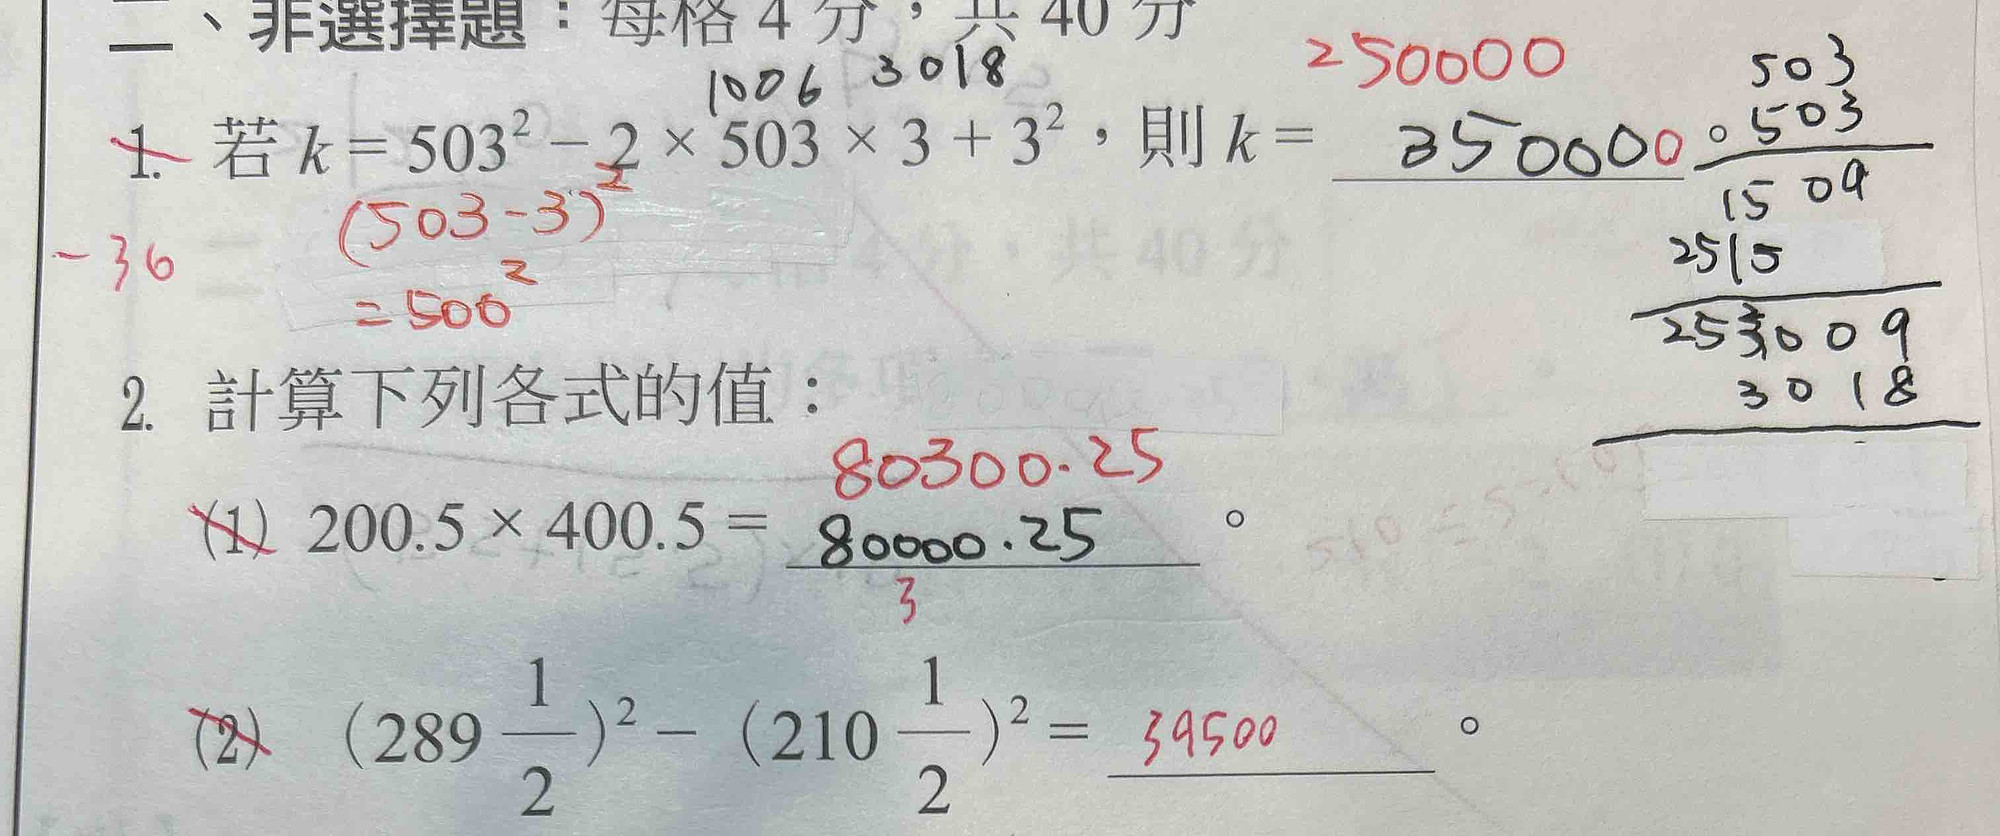 二、非選擇題：每格 4 分，共 40 分
1006 3018
250000
1. 若 k = 503² − 2 × 503 × 3 + 3²，則 k = 350000。
(503-3)²
= 500²
-36
503
503
1509
2515
253009
3018
2. 計算下列各式的值：
80300.25
(1) 200.5 × 400.5 = 80000.25。
3
(2) (289 1/2)² − (210 1/2)² = 39500。